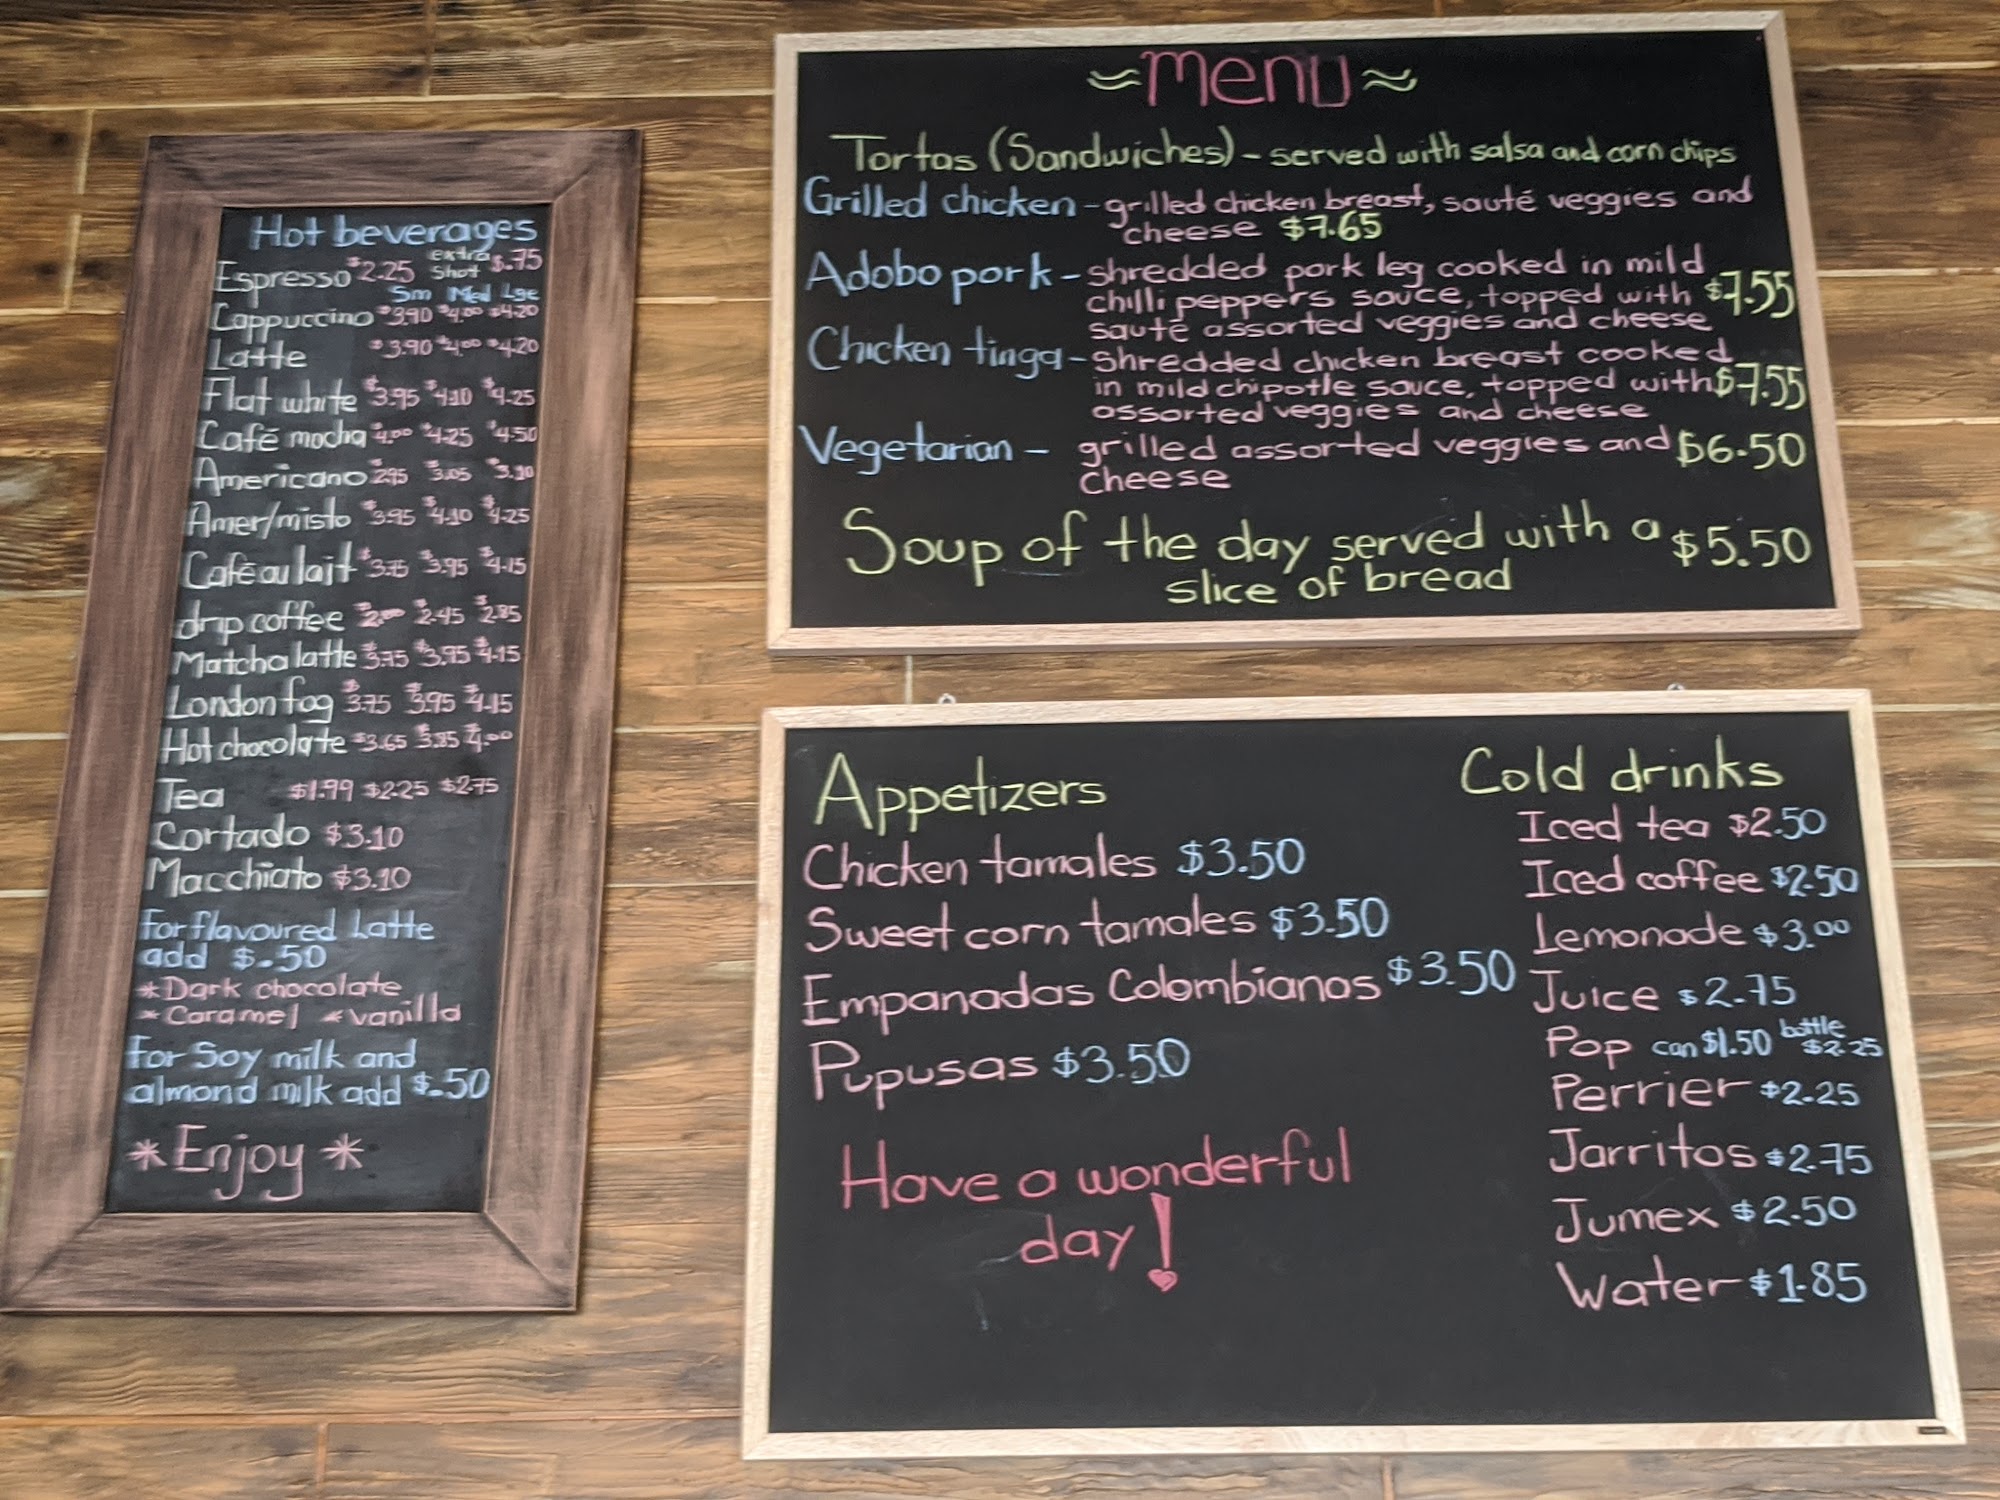 Hot beverages
Espresso $2.25 extra shot $.75
Sm Med Lge
Cappuccino $3.90 $4.00 $4.20
Latte $3.90 $4.00 $4.20
Flat white $3.95 $4.10 $4.25
Café mocha $4.00 $4.25 $4.50
Americano $2.95 $3.05 $3.10
Amer/misto $3.95 $4.10 $4.25
Café au lait $3.75 $3.95 $4.15
drip coffee $2.00 $2.45 $2.85
Matcha latte $3.75 $3.95 $4.15
London fog $3.75 $3.95 $4.15
Hot chocolate $3.65 $3.85 $4.00
Tea $1.99 $2.25 $2.75
Cortado $3.10
Macchiato $3.10
For flavoured Latte
add $.50
*Dark chocolate
*Caramel *vanilla
For Soy milk and
almond milk add $.50
*Enjoy*
~Menu~
Tortas (Sandwiches) - served with salsa and corn chips
Grilled chicken - grilled chicken breast, sauté veggies and
cheese $7.65
Adobo pork - shredded pork leg cooked in mild
chilli peppers sauce, topped with $7.55
sauté assorted veggies and cheese
Chicken tinga - shredded chicken breast cooked
in mild chipotle sauce, topped with $7.55
assorted veggies and cheese
Vegetarian - grilled assorted veggies and $6.50
cheese
Soup of the day served with a $5.50
slice of bread
Appetizers
Chicken tamales $3.50
Sweet corn tamales $3.50
Empanadas Colombianas $3.50
Pupusas $3.50
Have a wonderful
day!
Cold drinks
Iced tea $2.50
Iced coffee $2.50
Lemonade $3.00
Juice $2.75
Pop can $1.50 bottle $2.25
Perrier $2.25
Jarritos $2.75
Jumex $2.50
Water $1.85